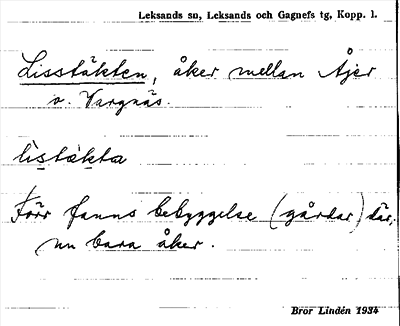 Leksands sn, Leksands och Gagnefs tg, Kopp. l.
Lisstäkten, åker mellan Åjer
o. Vargnäs.
listäkta
Förr fanns bebyggelse (gårdar) där,
nu bara åker.
Bror Lindén 1934